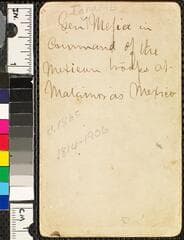 Genl Mejia in
Command of the
Mexican troops at
Matamoras Mexico
c. 1865
1814-1906